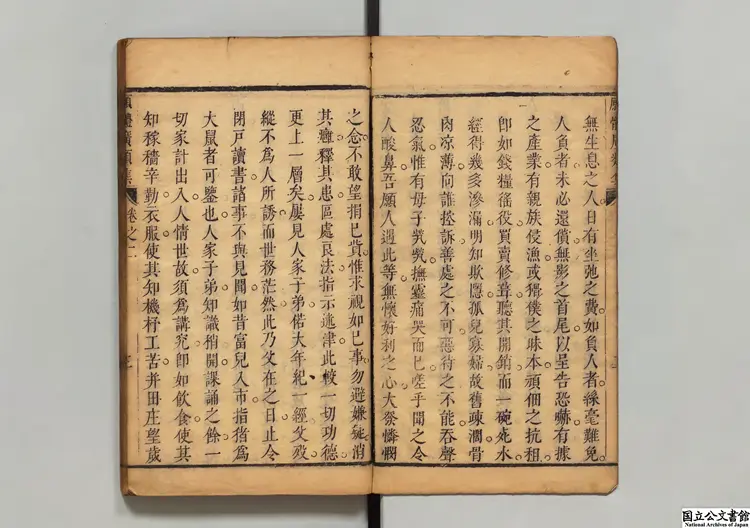 無生息之人日有坐弛之費如負人者絲毫難免
人負者未必還償無影之首尾以呈告恐嚇有據
之產業有親族侵漁或猾僕之昧本頑佃之抗租
卽如錢糧徭役買賣修葺聽其開銷而一碗死水
經得幾多滲漏明知欺隱孤兒寡婦故舊疎濶骨
肉凉薄向誰控訴善處之不可惡待之不能吞聲
忍氣惟有母子煢煢撫靈痛哭而已嗟乎聞之令
人酸鼻吾願人遇此等無懷好利之心大發憐憫
之念不敢望捐已貲惟求視如已事勿避嫌疑消
其癰釋其患區處良法指示迷津此較一切功德
更上一層矣屢見人家子弟偌大年紀一經父歿
縱不爲人所誘而世務茫然此乃父在之日止令
閉戶讀書諸事不與見聞如昔富兒入市指猪爲
大鼠者可鑒也人家子弟知識稍開課誦之餘一
切家計出入人情世故須爲講究卽如飲食使其
知稼穡辛勤衣服使其知機杼工苦井田庄望歲
卷之二
國立公文書館
National Archives of Japan